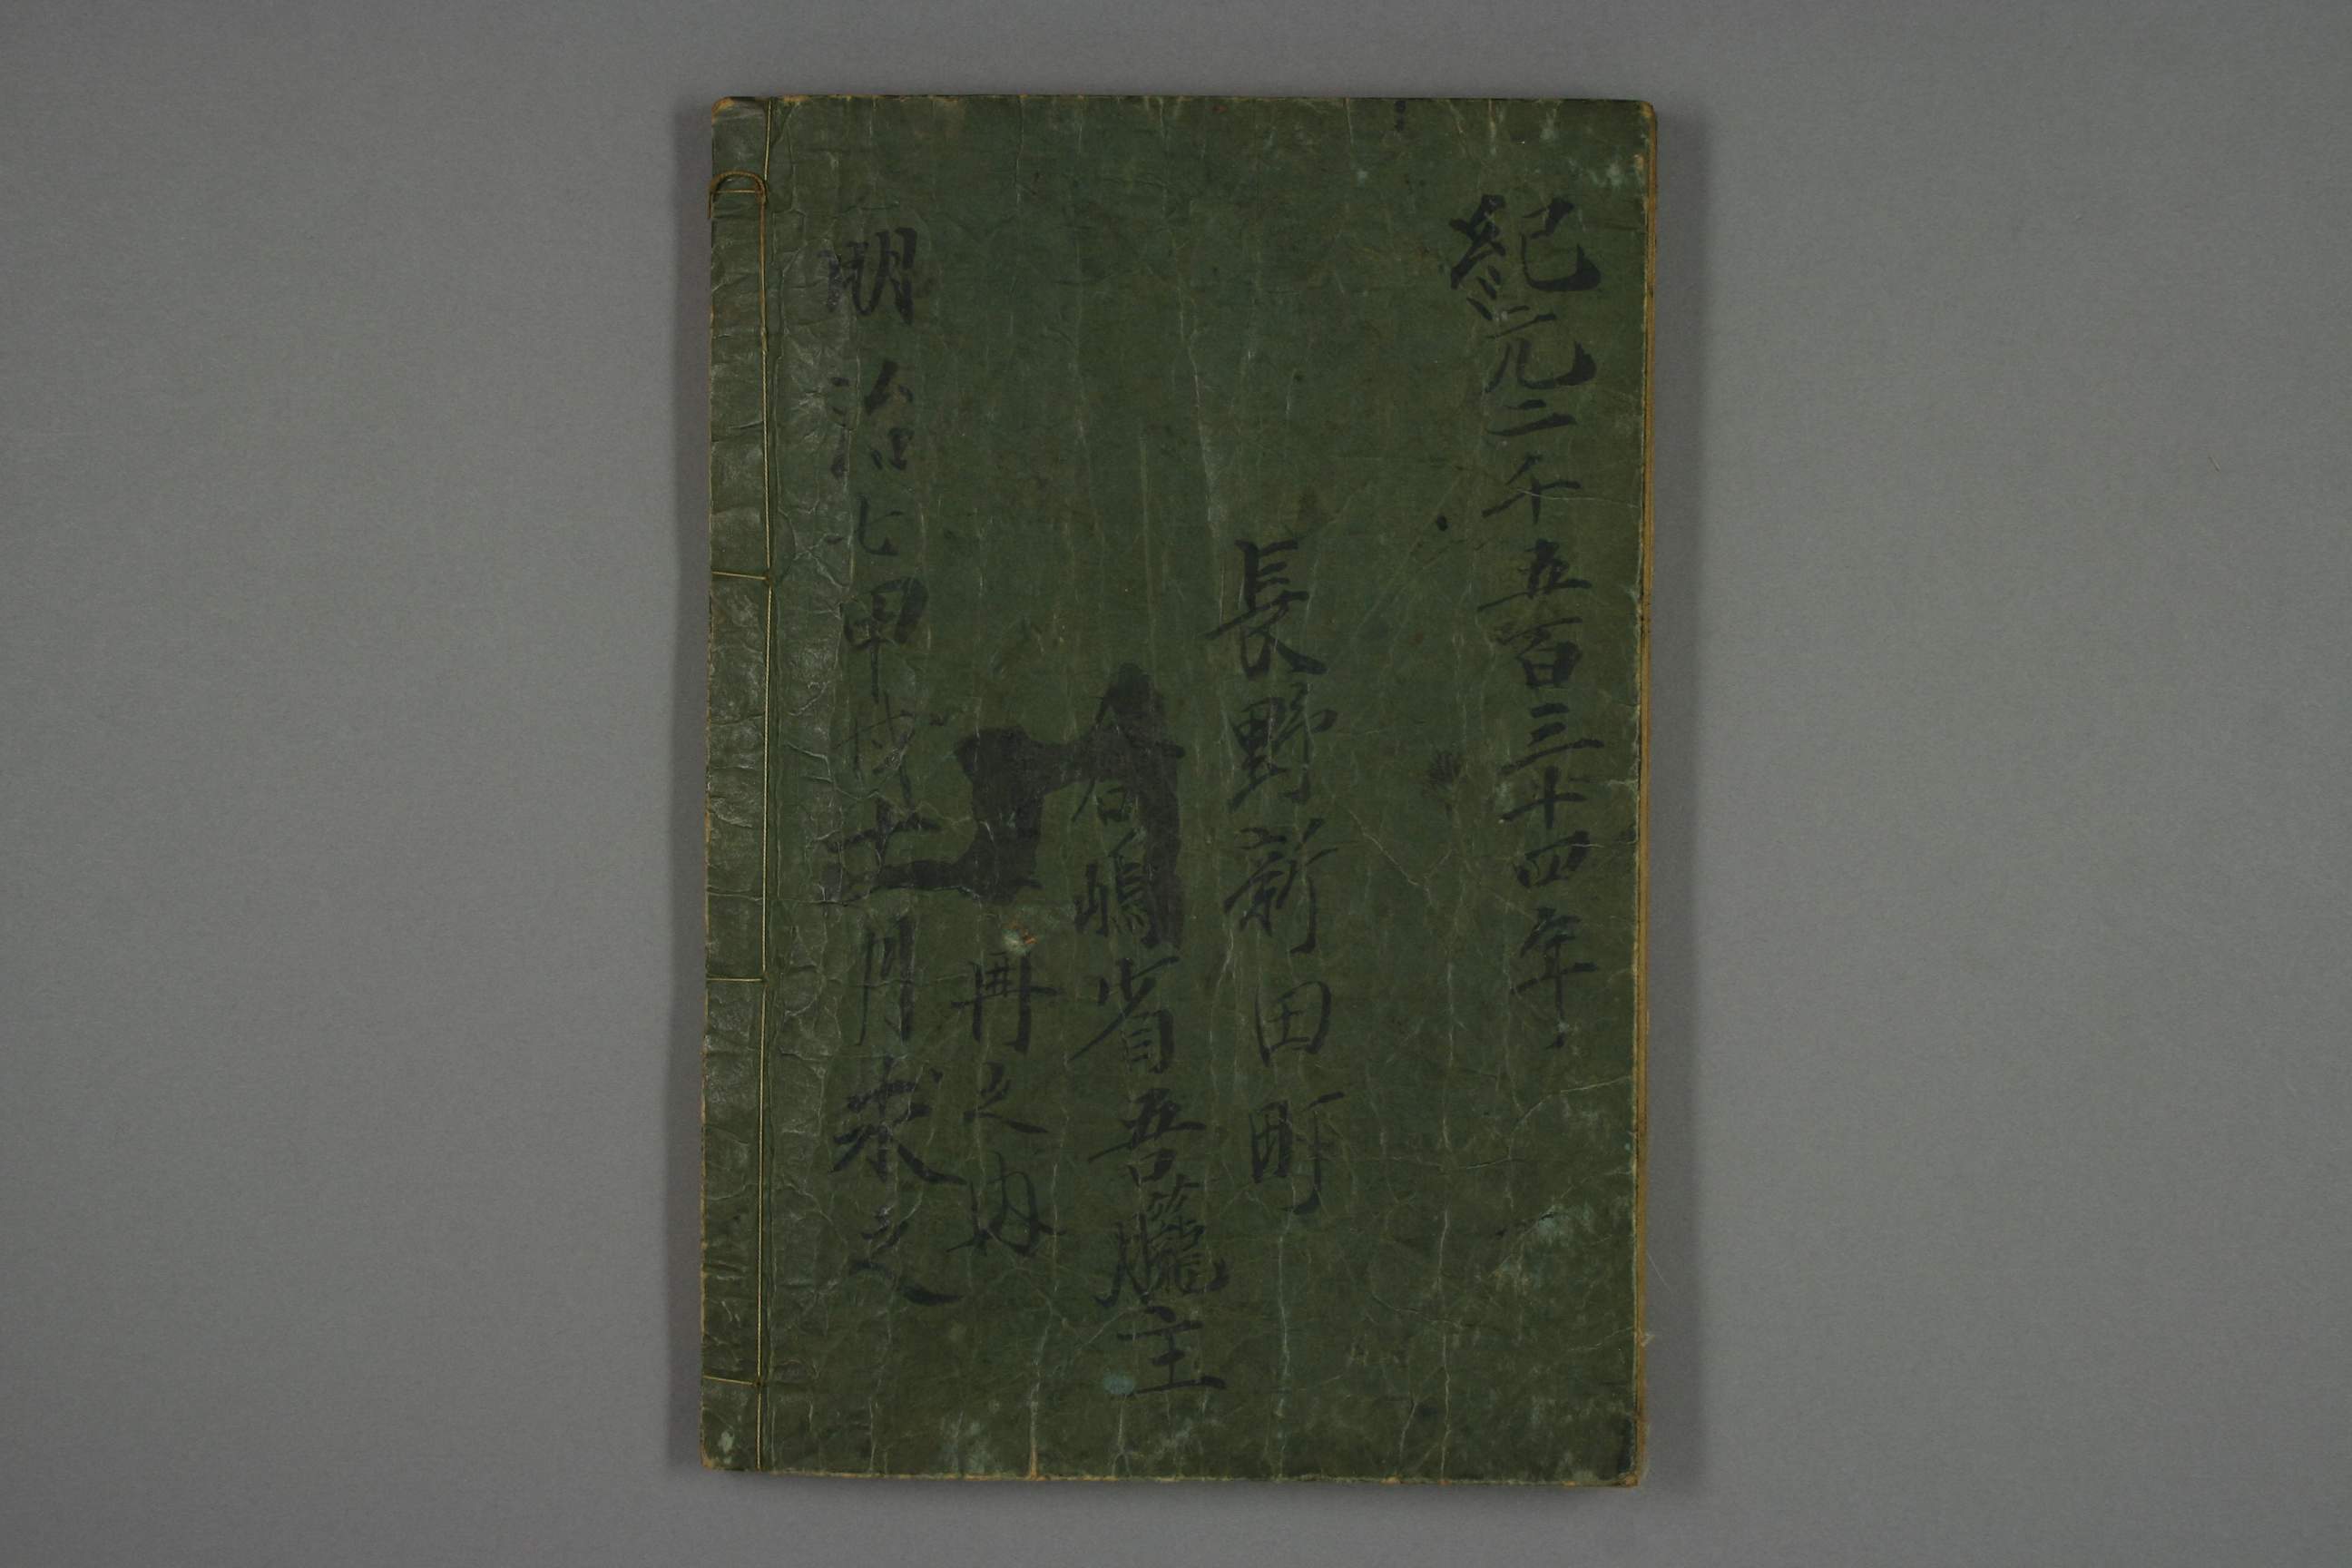 紀元二千五百三十四年
長野新田町
嶋省吾 主
冊之内
明治七甲戌十一月求之